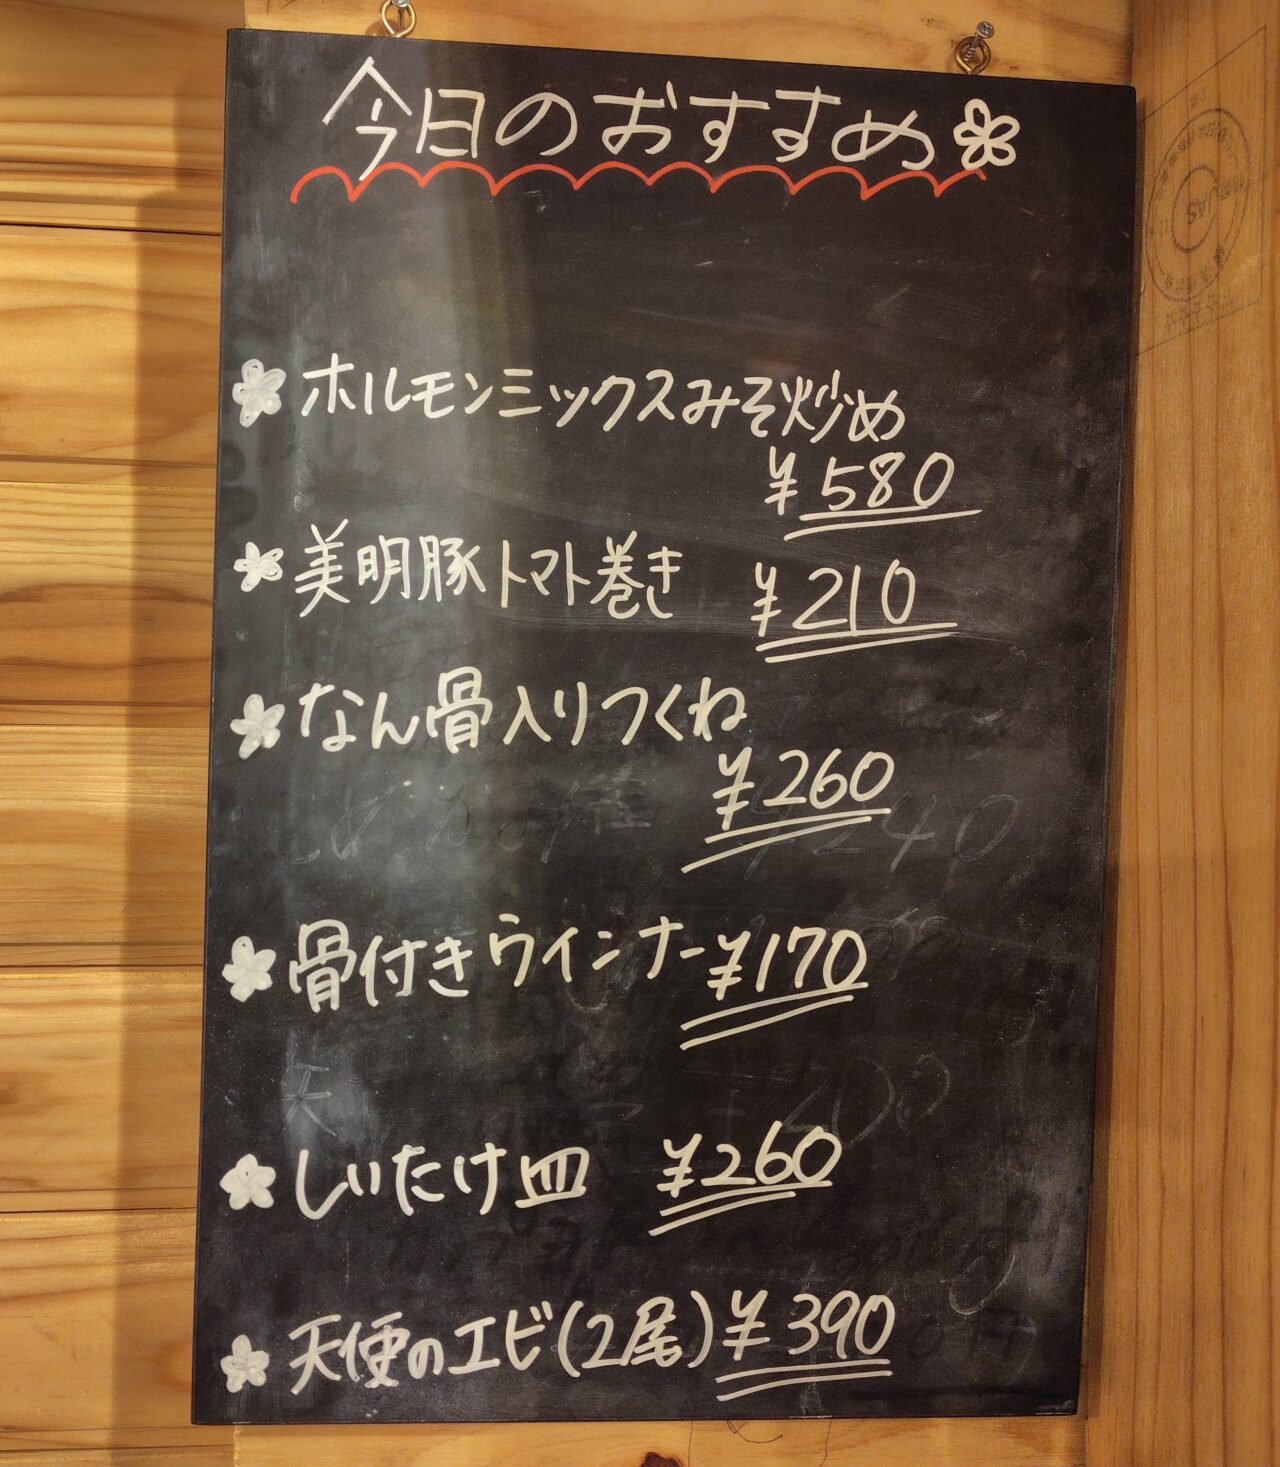 今日のおすすめ
ホルモンミックスみそ炒め
¥580
美明豚トマト巻き ¥210
なん骨入りつくね
¥260
骨付きウインナー ¥170
しいたけ皿 ¥260
天使のエビ(2尾) ¥390
JAS